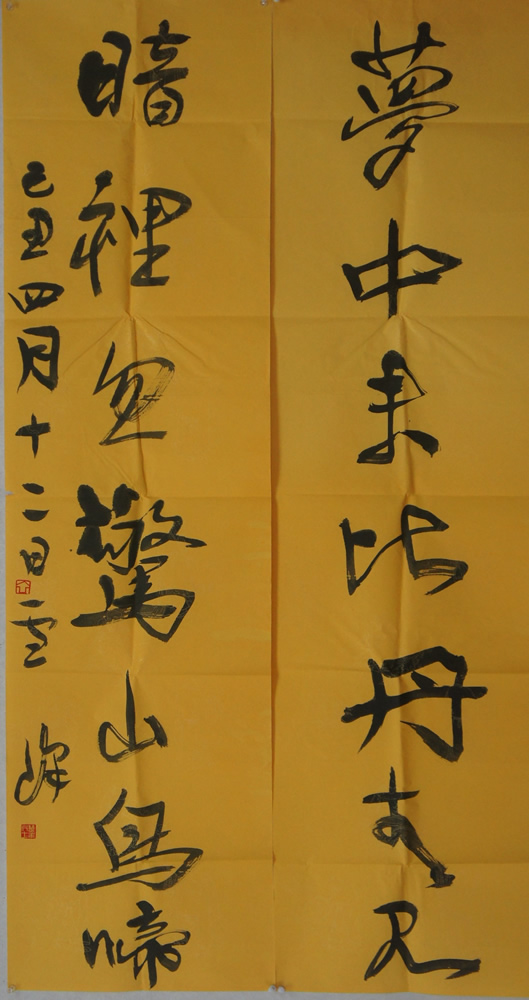 夢中未比丹青見
暗裡忽驚山鳥啼
己丑四月十二日雪峰